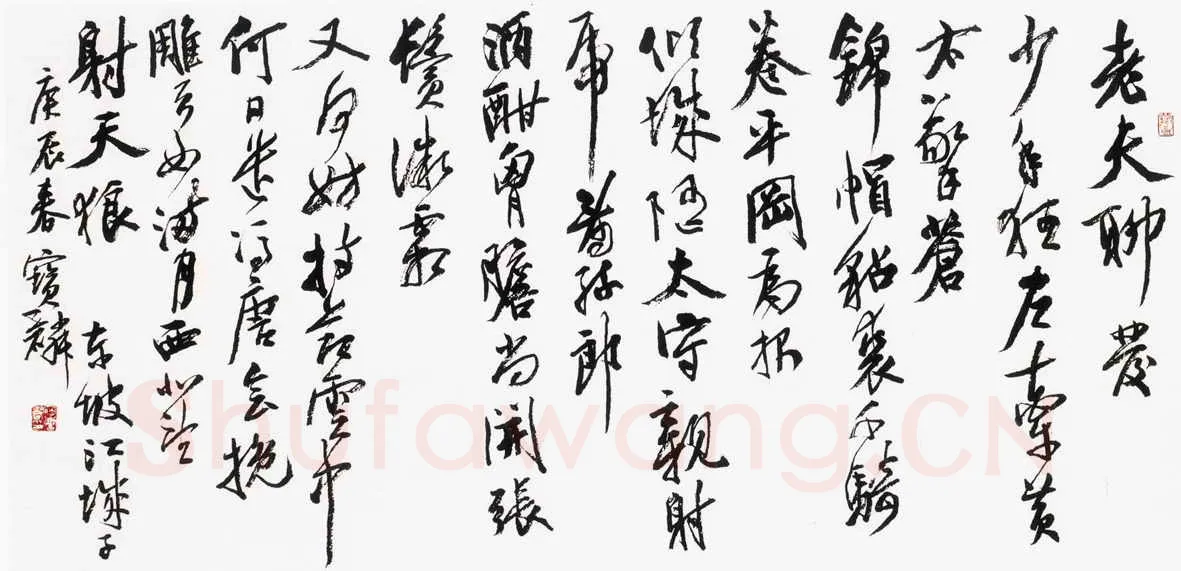 老夫聊發
少年狂左牽黄
右擎蒼
錦帽貂裘千騎
卷平岡為报
傾城隨太守親射
虎看孫郎
酒酣胸膽尚開張
鬢微霜
又何妨持節雲中
何日遣馮唐会挽
雕弓如滿月西北望
射天狼 东坡江城子
庚辰春寶麟
Shufawang.CN